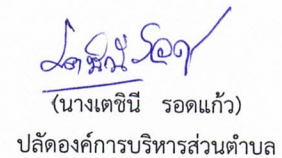 (นางเตชินี รอดแก้ว)
ปลัดองค์การบริหารส่วนตำบล